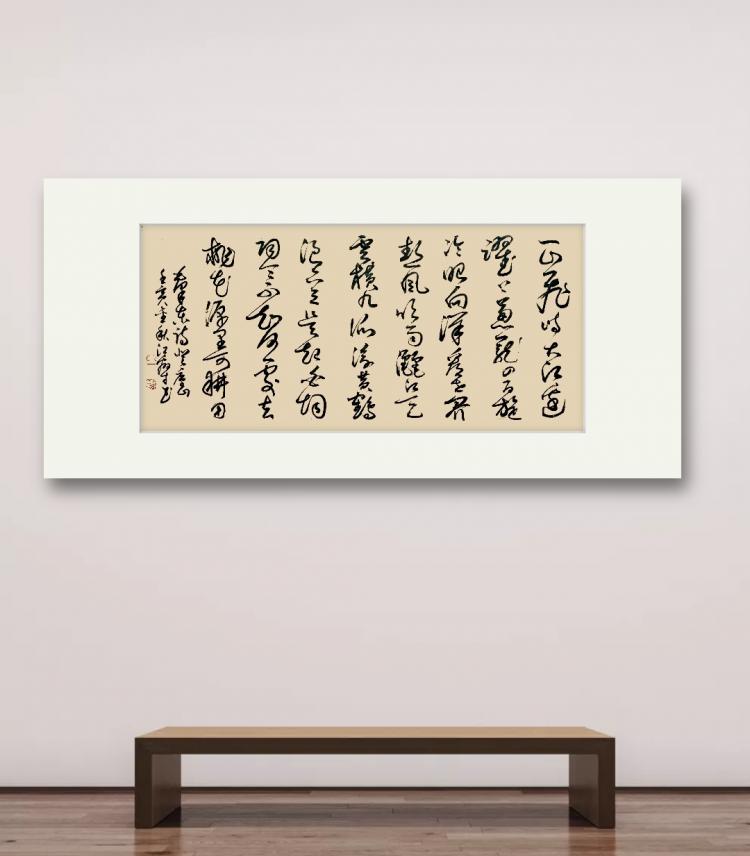 一山飛峙大江邊
躍上葱蘢四百旋
冷眼向洋看世界
熱風吹雨灑江天
雲橫九派浮黃鶴
浪下三吳起白烟
陶令不知何處去
桃花源里可耕田
毛澤東詩登廬山
壬寅金秋